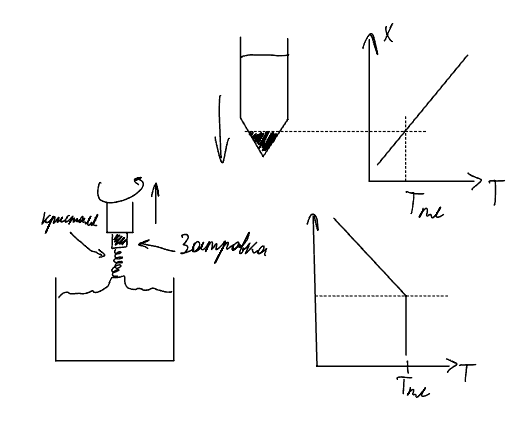 X
T
Tпл
кристалл
Затравка
T
Tпл